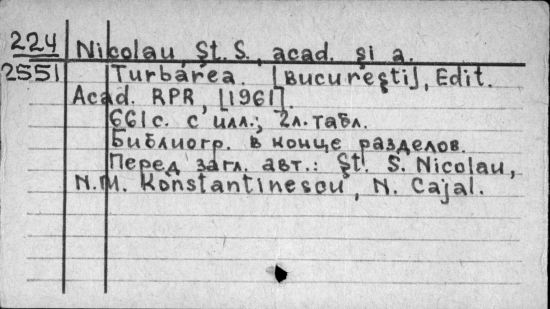 224 Nicolau, Şt. S., acad. şi a.
2551 Turbarea. [Bucureşti], Edit.
Acad. RPR, [1961].
661 с. с илл.; 2л. табл.
Библиогр. в конце разделов.
Перед загл. авт.: Şt. S. Nicolau,
N.M. Konstantinescu, N. Cajal.